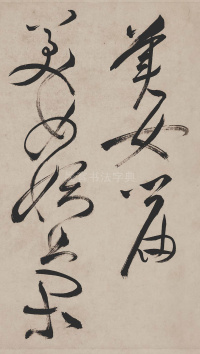 美女篇
美女妖且閑